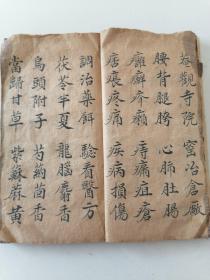 菴觀寺院 窰冶倉廠
腰背腿胯 心肺肚腸
癬疥癩 痔痛疽瘡
痕疼痛 疾病損傷
調治藥餌 驗看醫方
茯苓半夏 龍腦麝香
烏頭附子 芍葯茴香
當歸甘草 紫蘇麻黃